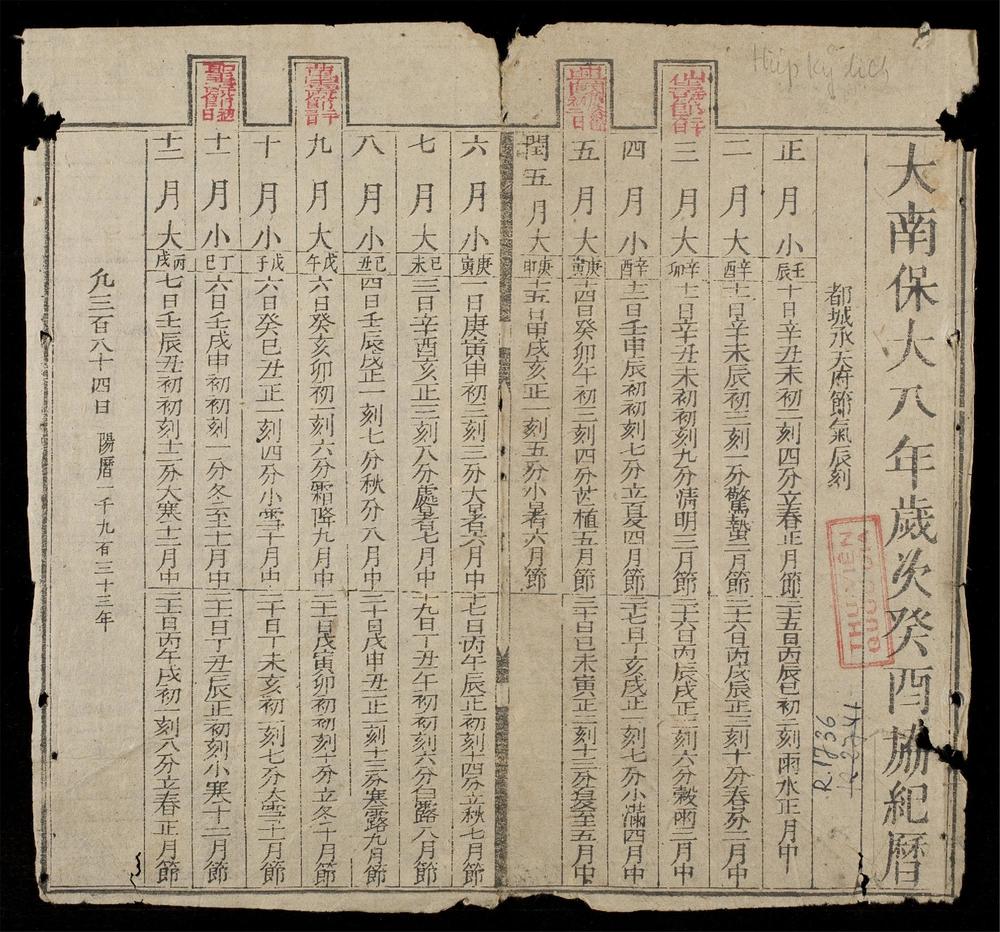 Hiệp kỷ lịch
大南保大八年歲次癸酉協紀曆
都城承天府節氣辰刻
THƯ VIỆN
QUỐC GIA
R.1736
正月小壬辰十日辛丑未初二刻四分立春正月節二十五日丙辰巳初二刻雨水正月中
二月大辛酉十一日辛未辰初三刻一分驚蟄二月節二十六日丙戌辰正三刻十分春分二月中
三月大辛卯十一日辛丑未初初刻九分清明三月節二十六日丙辰戌正一刻六分穀雨三月中
四月小辛酉十二日壬申辰初初刻七分立夏四月節二十七日丁亥戌正一刻七分小滿四月中
五月大庚寅十四日癸卯午初三刻四分芒種五月節三十日己未寅正二刻十三分夏至五月中
閏五月大庚申十五日甲戌亥正一刻五分小暑六月節
六月小庚寅一日庚寅申初三刻三分大暑六月中十七日丙午辰正初刻四分立秋七月節
七月大己未三日辛酉亥正三刻八分處暑七月中十九日丁丑午初初刻六分白露八月節
八月小己丑四日壬辰戌正一刻七分秋分八月中二十日戊申丑正二刻十三分寒露九月節
九月大戊午六日癸亥卯初二刻六分霜降九月中二十一日戊寅卯初初刻十分立冬十月節
十月小戊子六日癸巳丑正一刻四分小雪十月中二十日丁未亥初一刻七分大雪十一月節
十一月小丁巳六日壬戌申初初刻一分冬至十一月中二十一日丁丑辰正初刻小寒十二月節
十二月大丙戌七日壬辰丑初初刻十二分大寒十二月中二十一日丙午戌初一刻八分立春正月節
凡三百八十四日 陽曆一千九百三十三年